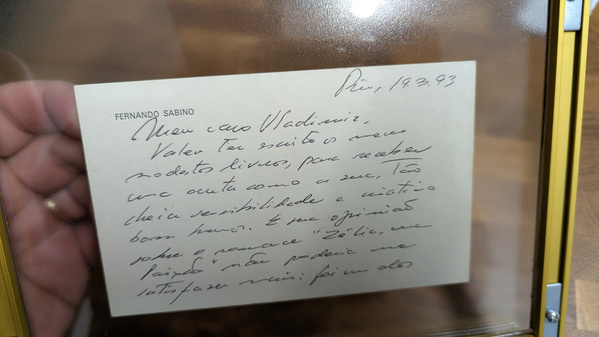 Rio, 19.3.93
FERNANDO SABINO
Meu caro Vladimir,
Valeu ter escrito os meus
modestos livros, para receber
uma carta como a sua, tão
cheia sensibilidade e
bom humor. E sua opinião
sobre o romance "Zélia, uma
Paixão" não poderia me
satisfazer mais: foi um dos